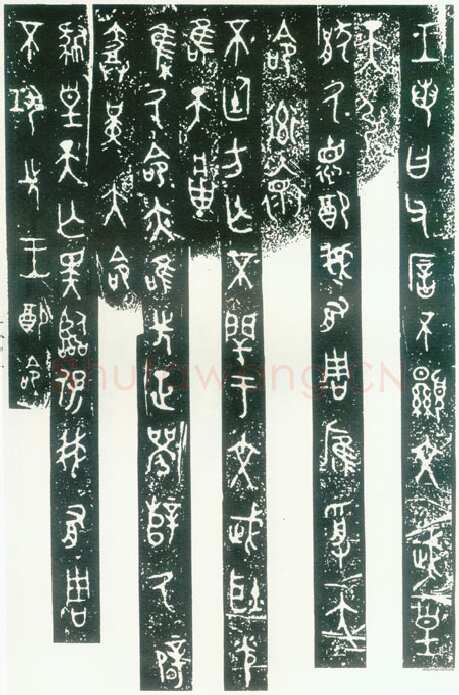 王若曰父厝不顯文武皇
天引
猒氒德配我有周膺受大
命率懷
不廷方亡不閈于文武耿光
唯天𤖕
集氒命亦唯先正襄辥氒辟
堇大命
肆皇天亡斁臨保我有周
不巩先王配命
shufawang.CN